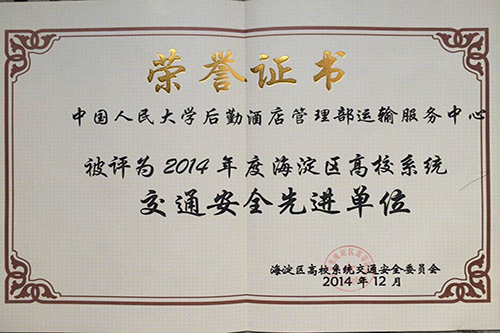 荣誉证书
中国人民大学后勤酒店管理部运输服务中心
被评为2014年度海淀区高校系统
交通安全先进单位
海淀区高校系统交通安全委员会
2014年12月